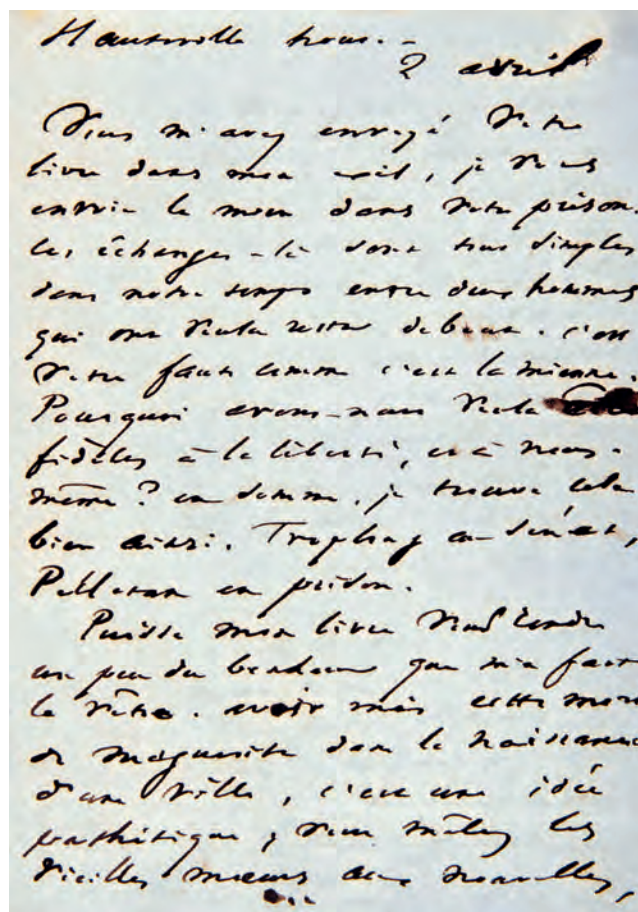 Hauteville house. –
2 avril
Vous m'avez envoyé votre
livre dans mon exil, je vous
envoie le mien dans votre prison.
ces échanges-là sont tous simples
dans notre temps entre deux hommes
qui ont voulu rester debout. c'est
votre faute comme c'est la mienne.
Pourquoi avons-nous voulu être
fidèles à la liberté, et à nous-
même ? en somme, je trouve cela
bien ainsi. Troplong au sénat,
Pelletan en prison.
Puisse mon livre vous rendre
un peu du bonheur que m'a fait
le vôtre. avoir mis cette mort
de marguerite dans la naissance
d'une ville, c'est une idée
pathétique ; vous mêlez les
vieilles mœurs aux nouvelles,